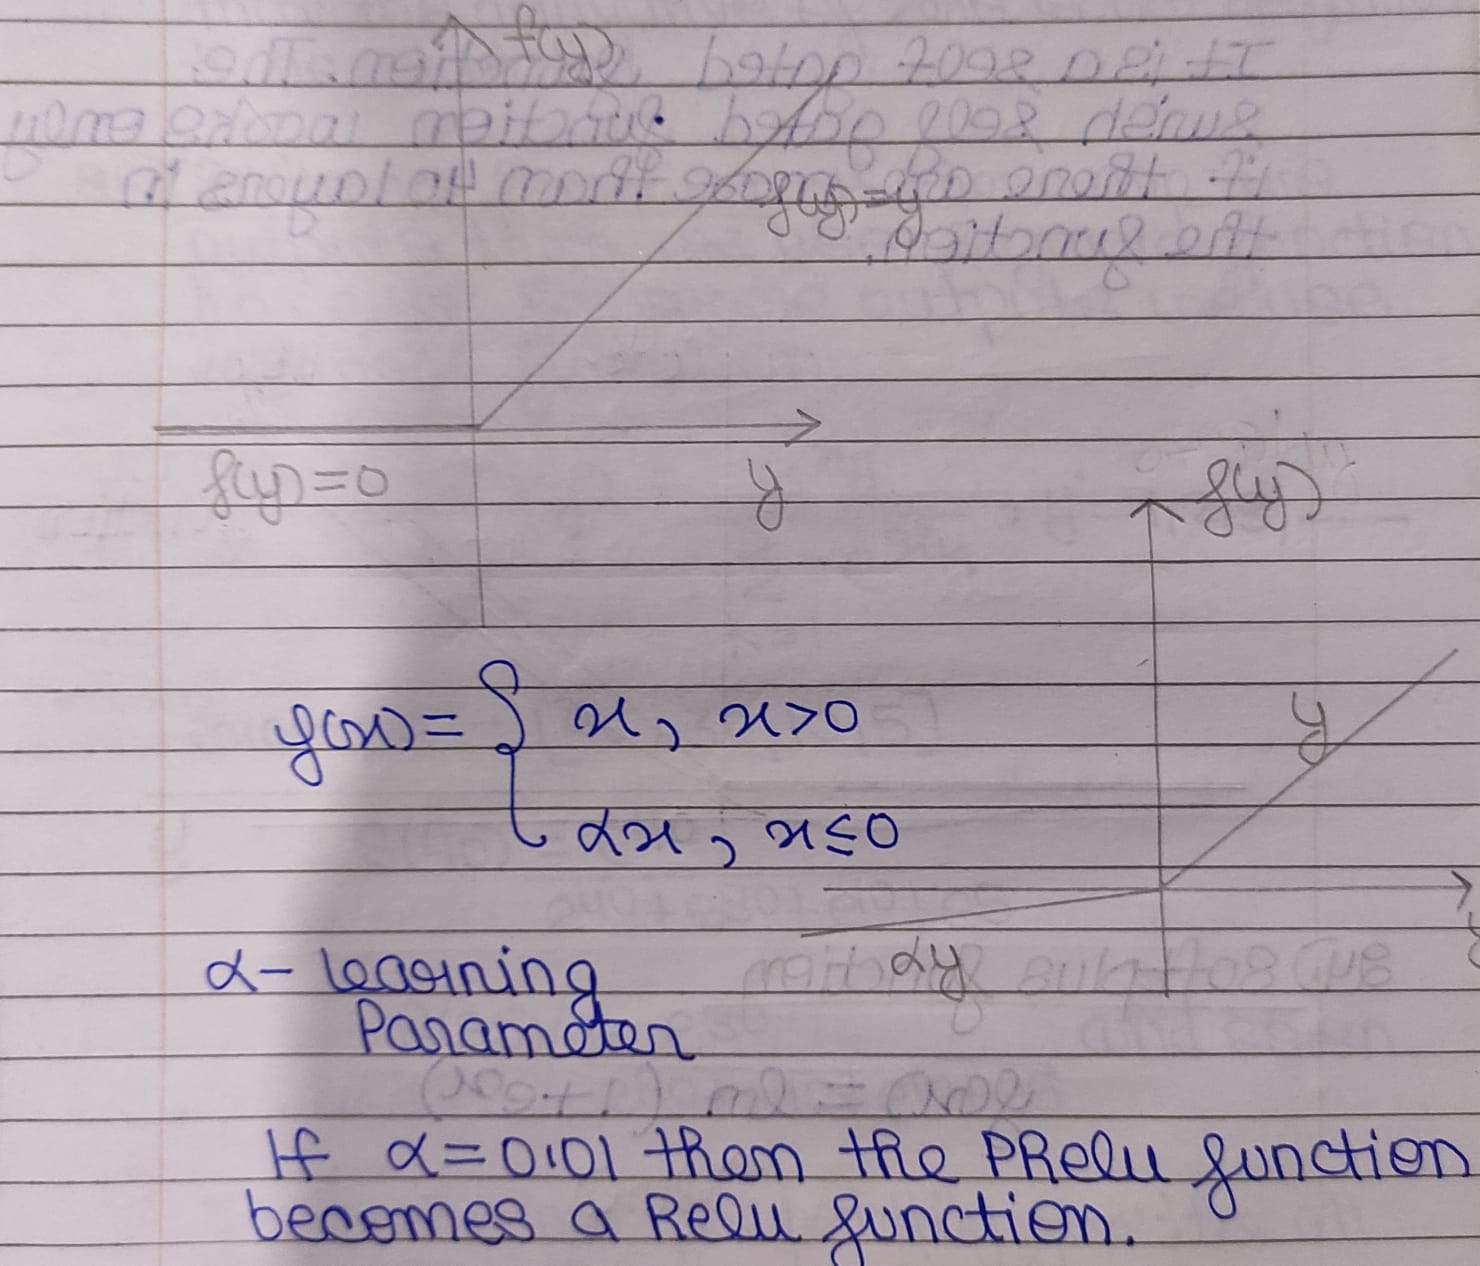 f(y)
f(y)=y
f(y)=0
y
f(y)
y
f(x)= { x, x>0
αx, x≤0
αy
α- learning
Parameter
If α=0.01 then the PRelu function
becomes a Relu function.